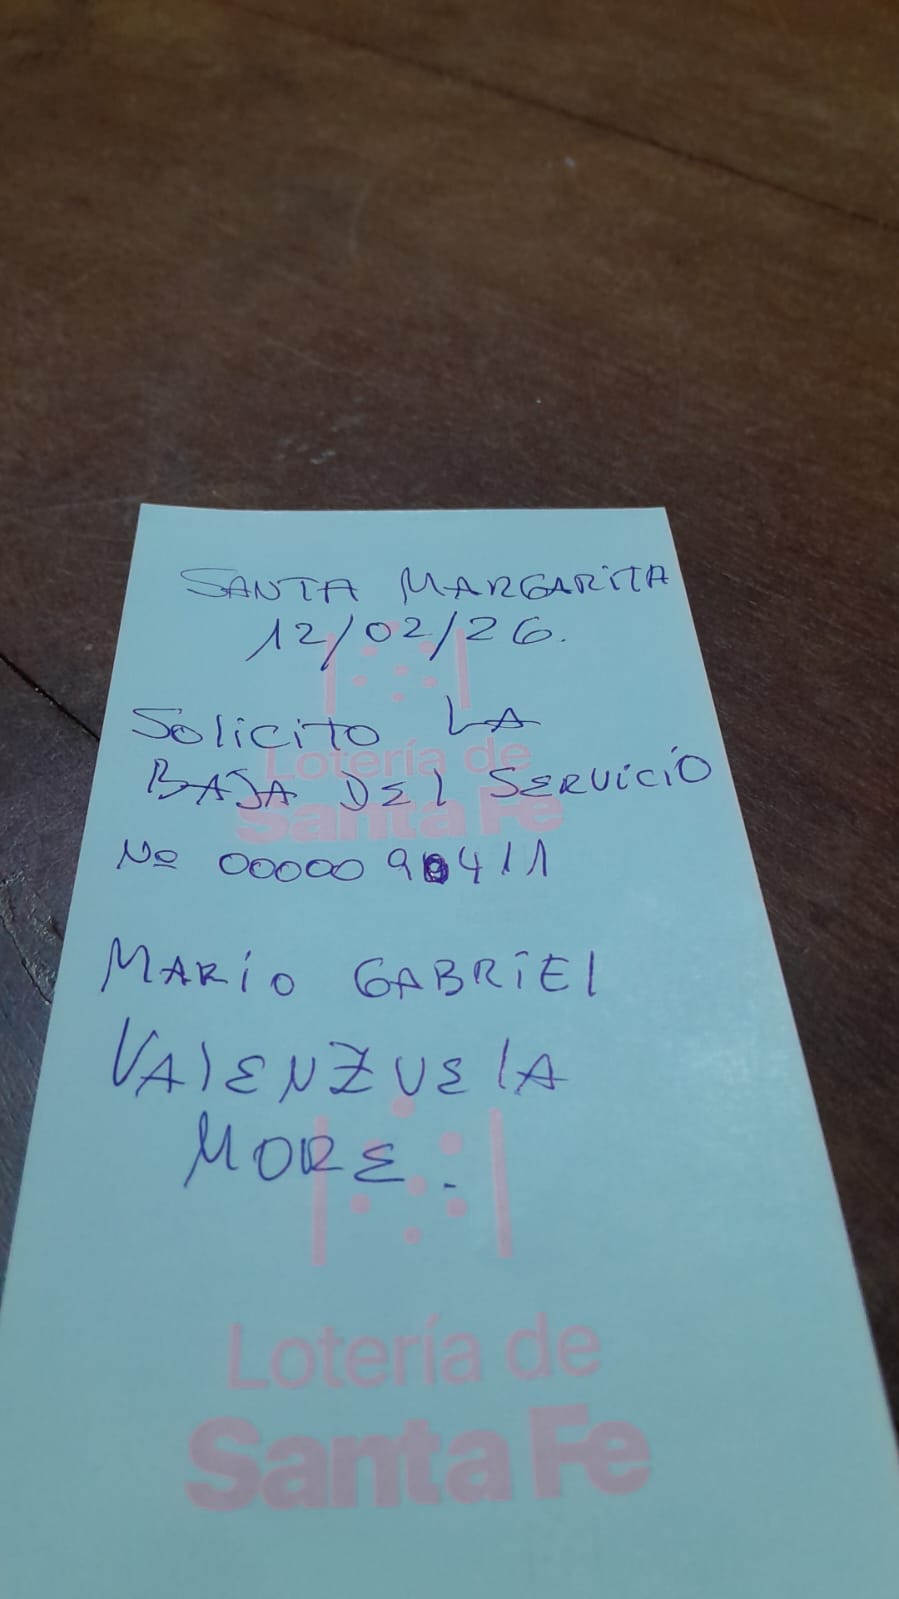 SANTA MARGARITA
12/02/26.
Solicito LA
BAJA DEl SERVICIO
Lotería de
Santa Fe
Nº 00000 90411
MARIO GABRIEl
VAlENZUElA
MORE.
Lotería de
Santa Fe